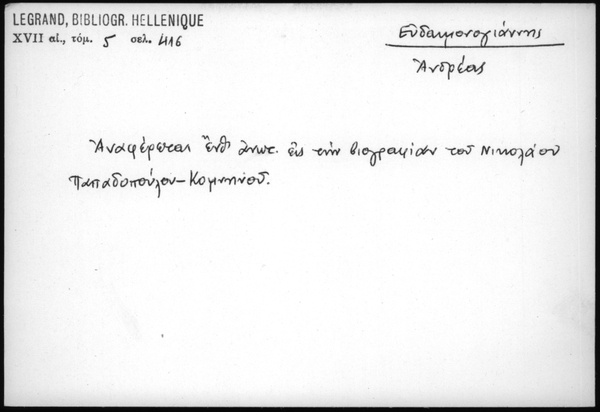 LEGRAND, BIBLIOGR. HELLENIQUE
XVII αἰ., τόμ. 5 σελ. 416
Εὐδαιμονογιάννης
Ἀνδρέας
Ἀναφέρεται ἔνθ' ἀνωτ. εἰς τὴν βιογραφίαν τοῦ Νικολάου
Παπαδοπούλου-Κομνηνοῦ.